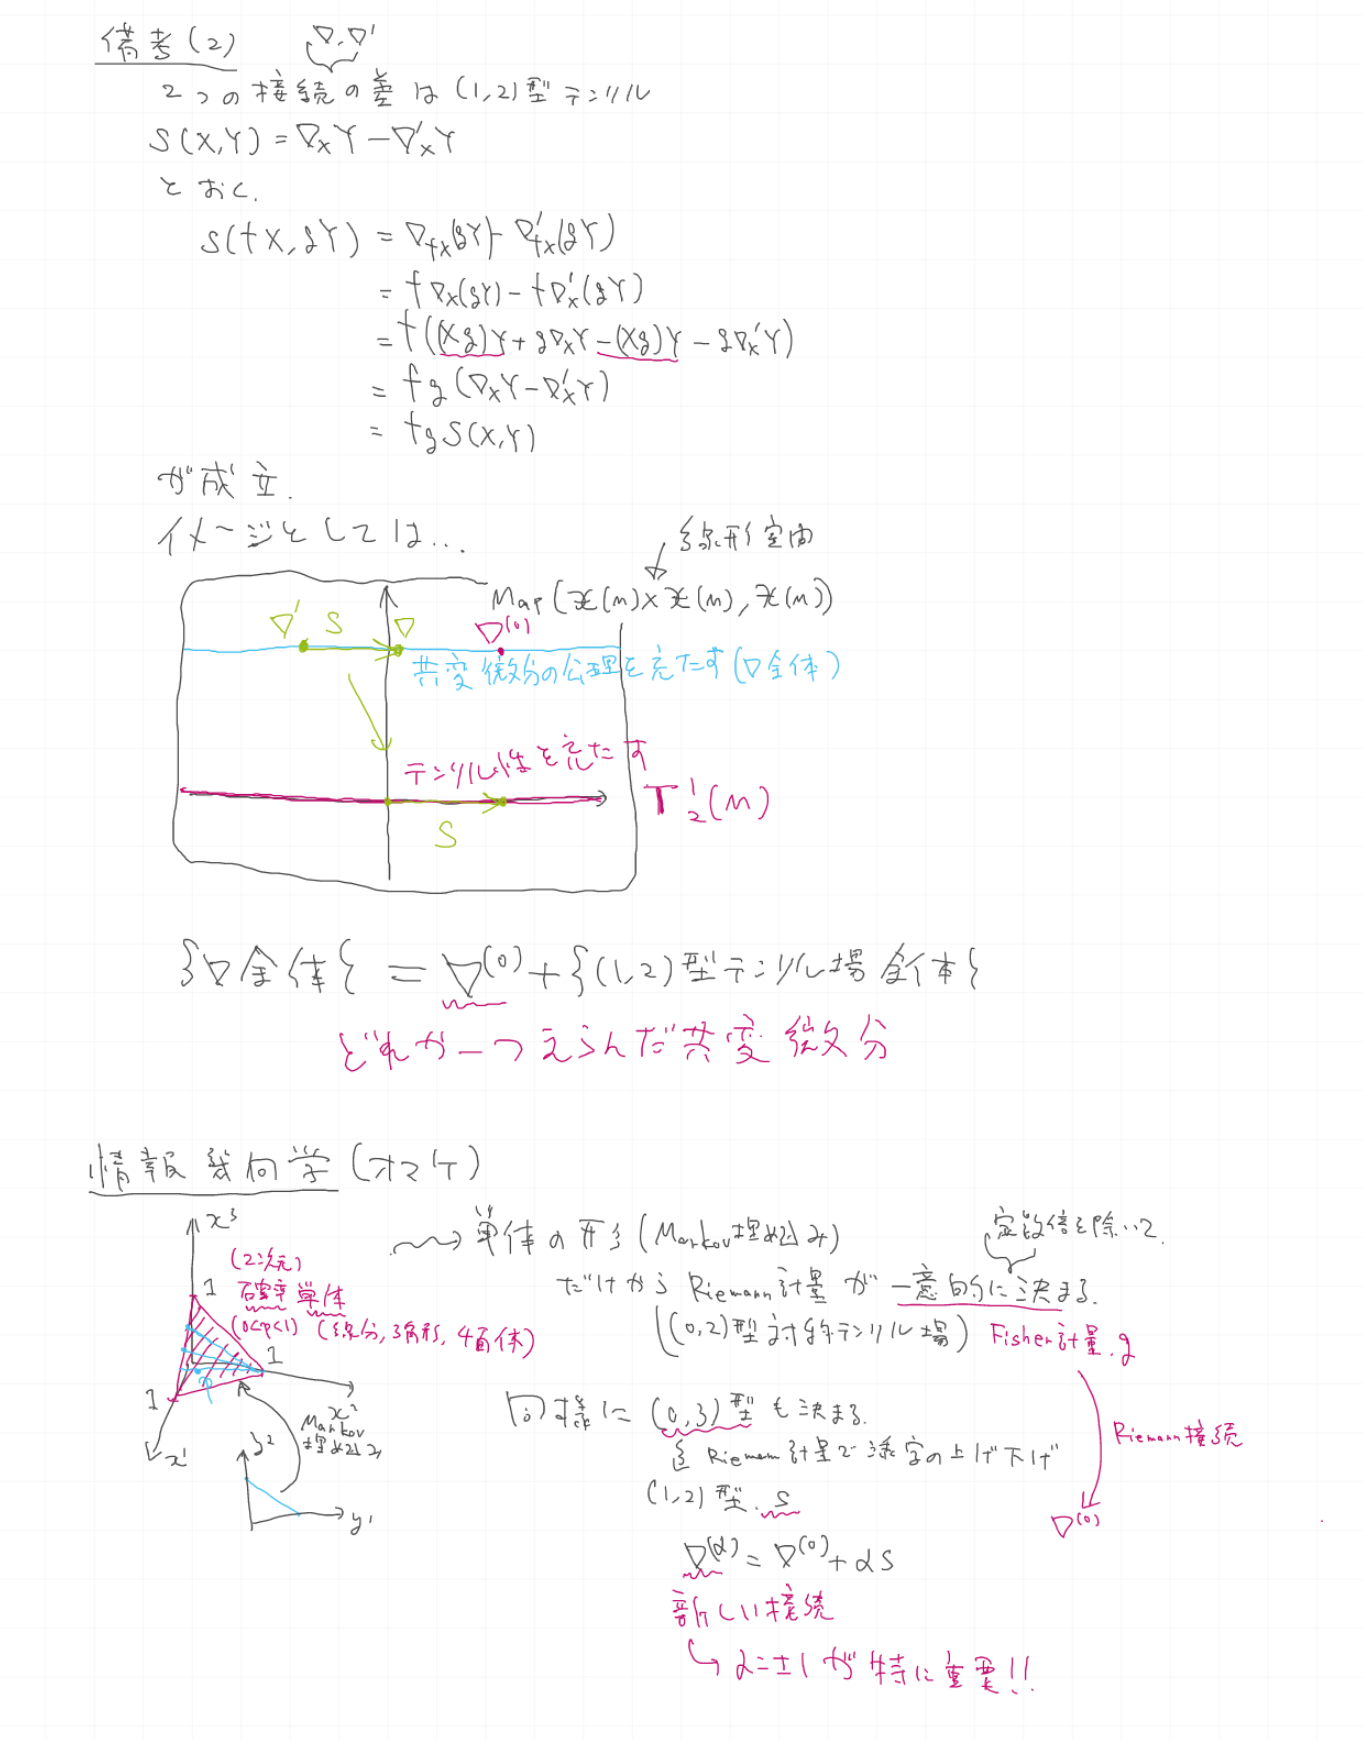 備考(2)
∇,∇'
2つの接続の差は(1,2)型テンソル
S(X,Y)=∇_X Y-∇'_X Y
とおく.
S(fX,gY) = ∇_fX(gY)-∇'_fX(gY)
= f∇_X(gY)-f∇'_X(gY)
= f((Xg)Y+g∇_X Y-(Xg)Y-g∇'_X Y)
= fg(∇_X Y-∇'_X Y)
= fgS(X,Y)
が成立.
イメージとしては...
線形空間
Map(𝔛(M)×𝔛(M),𝔛(M))
∇' S ∇ ∇^(0)
共変微分の公理を充たす(∇全体)
テンソル性を充たす
T^1_2(M)
S
{∇全体} = ∇^(0)+{(1,2)型テンソル場全体}
どれか一つえらんだ共変微分
情報幾何学(オマケ)
x^3
(2次元)
1 確率単体
(0<p<1) (線分,3角形,4面体)
1
1
x^2
x^1
Markov
埋め込み
y^2
y^1
単体の形(Markov埋め込み)
定数倍を除いて
だけからRiemann計量が一意的に決まる.
((0,2)型対称テンソル場) Fisher計量.g
Riemann接続
∇^(0)
同様に(0,3)型も決まる.
Riemann計量で添字の上げ下げ
(1,2)型.S
∇^(α)=∇^(0)+αS
新しい接続
↳α=±1が特に重要!!